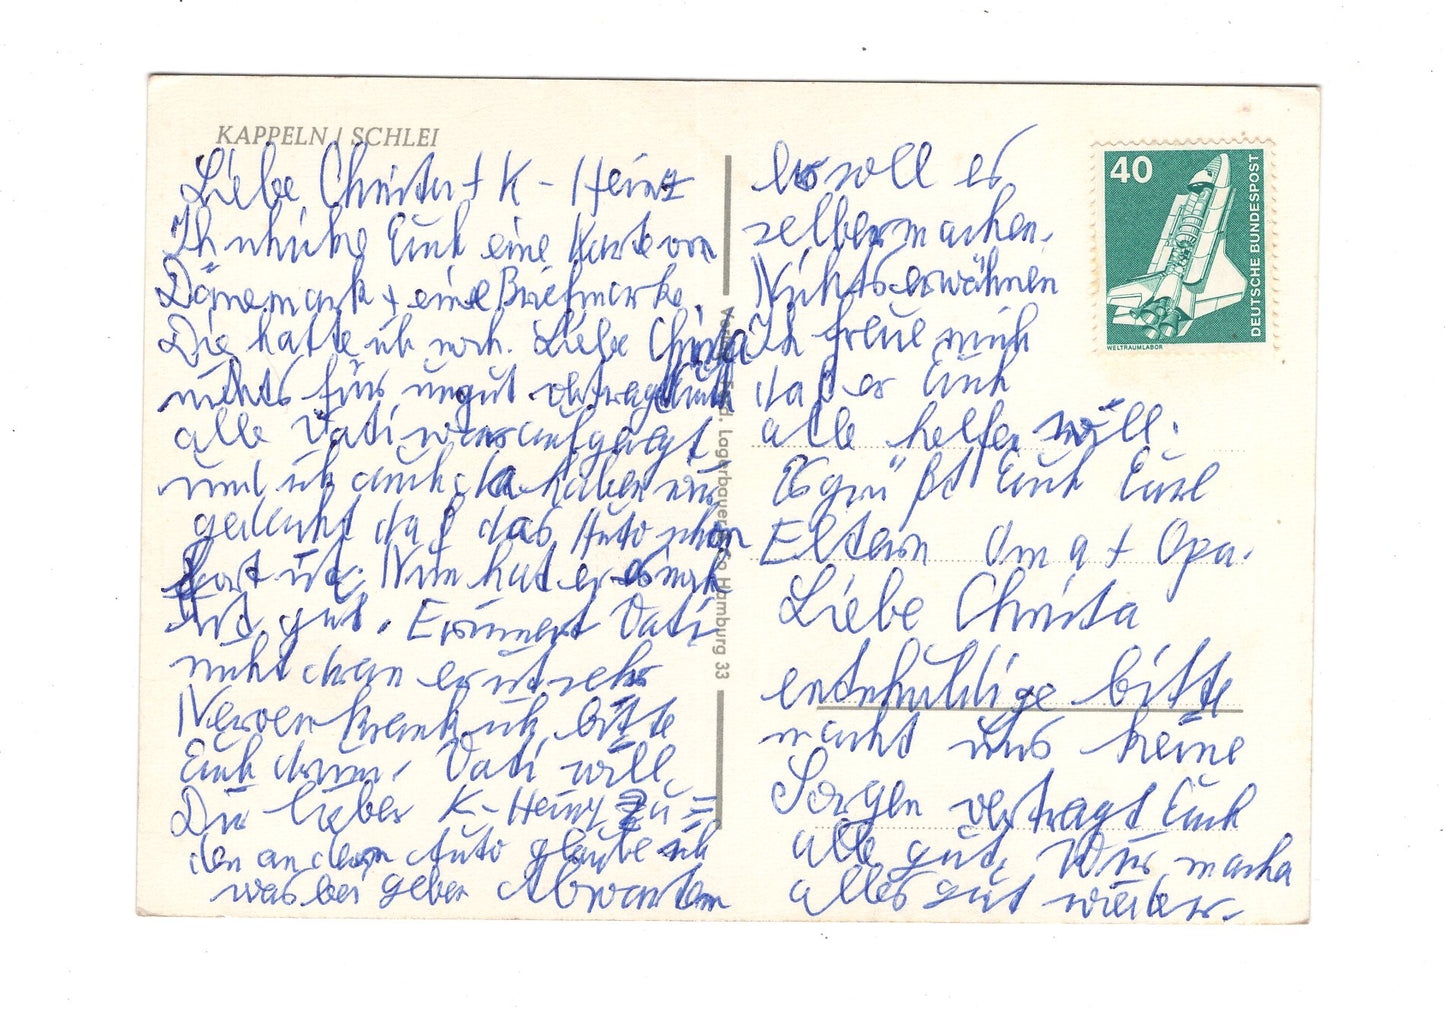 KAPPELN / SCHLEI
Liebe Christa + K - Heinz
Ich schicke Euch eine Karte von
Dänemark + eine Briefmarke.
Die hatte ich noch. Liebe Christa
nichts für ungut vertragt Euch
alle Vati war aufgeregt
und ich auch, da haben wir
gedacht daß das Auto schon
fort ist. Nun hat er es noch
gut. Erinnert Vati
nicht dran er ist sehr
Nervenkrank ich bitte
Euch drum. Vati will
Dir lieber K-Heinz zu
den andern Auto glaube ich
was bei geben Abwarten
soll es
selber machen.
Nichts erwähnen
Ich freue mich
daß er Euch
alle helfen will.
Es grüßt Euch Eure
Eltern Oma + Opa.
Liebe Christa
entschuldige bitte
macht uns keine
Sorgen vertragt Euch
alle gut. Wir machen
alles gut wieder.
Lagerbauer & Co Hamburg 33
40
DEUTSCHE BUNDESPOST
WELTRAUMLABOR